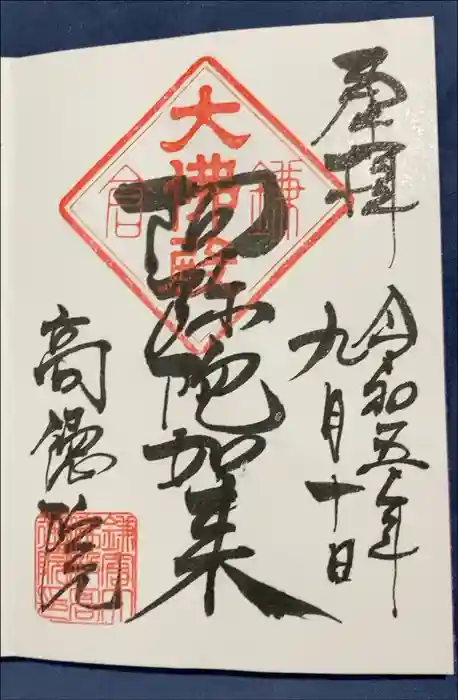 奉拝
令和五年
九月十日
大佛殿
鎌
倉
阿弥陀如来
高徳院